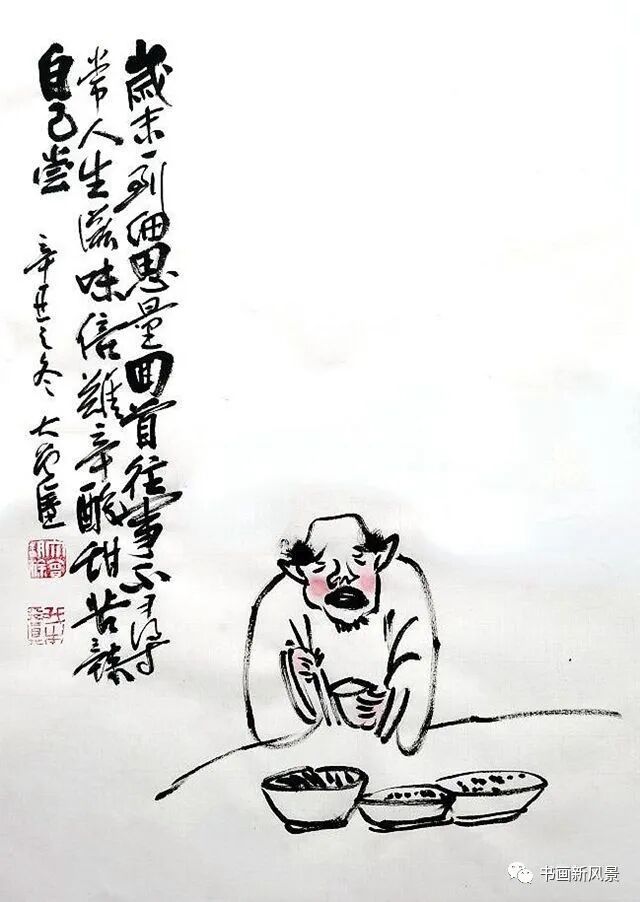 歲末一到細思量回首往事不尋
常人生滋味倍難辛酸甜苦辣
自己嘗
辛丑之冬
书画新风景